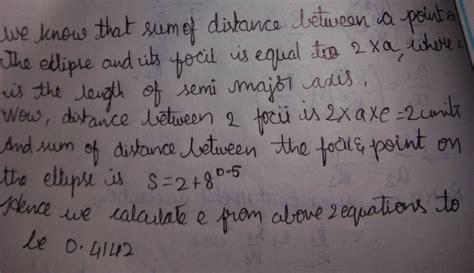 we know that sum of distance between a point on
the ellipse and its focii is equal to 2 x a, where a
is the length of semi major axis.
Now, distance between 2 focii is 2 x a x e = 2 units
And sum of distance between the focii & point on
the ellipse is S = 2 + 8^0.5
Hence we calculate e from above 2 equations to
be 0.4142